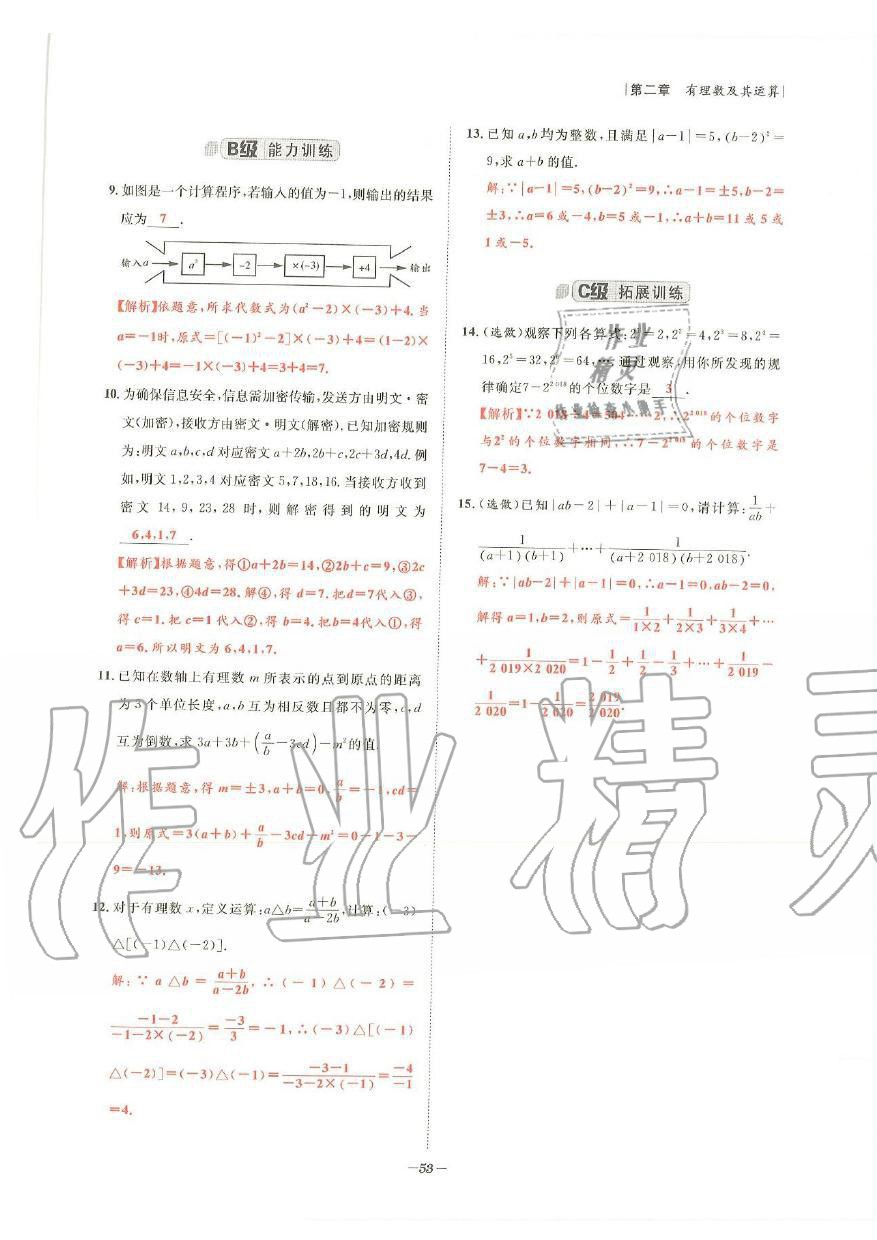 第二章 有理数及其运算
B级 能力训练
9. 如图是一个计算程序,若输入的值为-1,则输出的结果
应为 7 .
输入a a² -2 ×(-3) +4 输出
【解析】依题意,所求代数式为(a²-2)×(-3)+4. 当
a=-1时,原式=[(-1)²-2]×(-3)+4=(1-2)×
(-3)+4=-1×(-3)+4=3+4=7.
10. 为确保信息安全,信息需加密传输,发送方由明文·密
文(加密),接收方由密文·明文(解密).已知加密规则
为:明文a,b,c,d对应密文a+2b,2b+c,2c+3d,4d. 例
如,明文1,2,3,4对应密文5,7,18,16. 当接收方收到
密文 14, 9, 23, 28 时, 则解密得到的明文为
6,4,1,7 .
【解析】根据题意,得①a+2b=14,②2b+c=9,③2c
+3d=23,④4d=28. 解④,得 d=7. 把d=7代入③,
得 c=1. 把 c=1 代入②,得 b=4. 把b=4代入①,得
a=6. 所以明文为6,4,1,7.
11. 已知在数轴上有理数 m 所表示的点到原点的距离
为3个单位长度,a,b互为相反数且都不为零,c,d
互为倒数,求3a+3b+(a/b-3cd)-m²的值.
解:根据题意,得 m=±3,a+b=0,a/b=-1,cd=
1,则原式=3(a+b)+a/b-3cd-m²=0-1-3-
9=-13.
12. 对于有理数x,定义运算:a△b=(a+b)/(a-2b),计算:(-3)
△[(-1)△(-2)].
解:∵a△b=(a+b)/(a-2b),∴(-1)△(-2)=
(-1-2)/(-1-2×(-2))=(-3)/3=-1,∴(-3)△[(-1)
△(-2)]=(-3)△(-1)=(-3-1)/(-3-2×(-1))=(-4)/(-1)
=4.
13. 已知a,b均为整数,且满足|a-1|=5,(b-2)²=
9,求a+b的值.
解:∵|a-1|=5,(b-2)²=9,∴a-1=±5,b-2=
±3,∴a=6或-4,b=5或-1,∴a+b=11或5或
1或-5.
C级 拓展训练
14. (选做)观察下列各算式:2¹=2,2²=4,2³=8,2⁴=
16,2⁵=32,2⁶=64,…通过观察,用你所发现的规
律确定7-2²⁰¹⁸的个位数字是 3 .
【解析】∵2 018÷4=504……2,∴2²⁰¹⁸的个位数字
与2²的个位数字相同,∴7-2²⁰¹⁸的个位数字是
7-4=3.
15. (选做)已知|ab-2|+|a-1|=0,请计算:1/(ab)+
1/((a+1)(b+1))+…+1/((a+2 018)(b+2 018)).
解:∵|ab-2|+|a-1|=0,∴a-1=0,ab-2=0,
解得a=1,b=2,则原式=1/(1×2)+1/(2×3)+1/(3×4)+…
+1/(2 019×2 020)=1-1/2+1/2-1/3+…+1/(2 019)-
1/(2 020)=1-1/(2 020)=(2 019)/(2 020).
作业精灵
作业
精灵
—53—